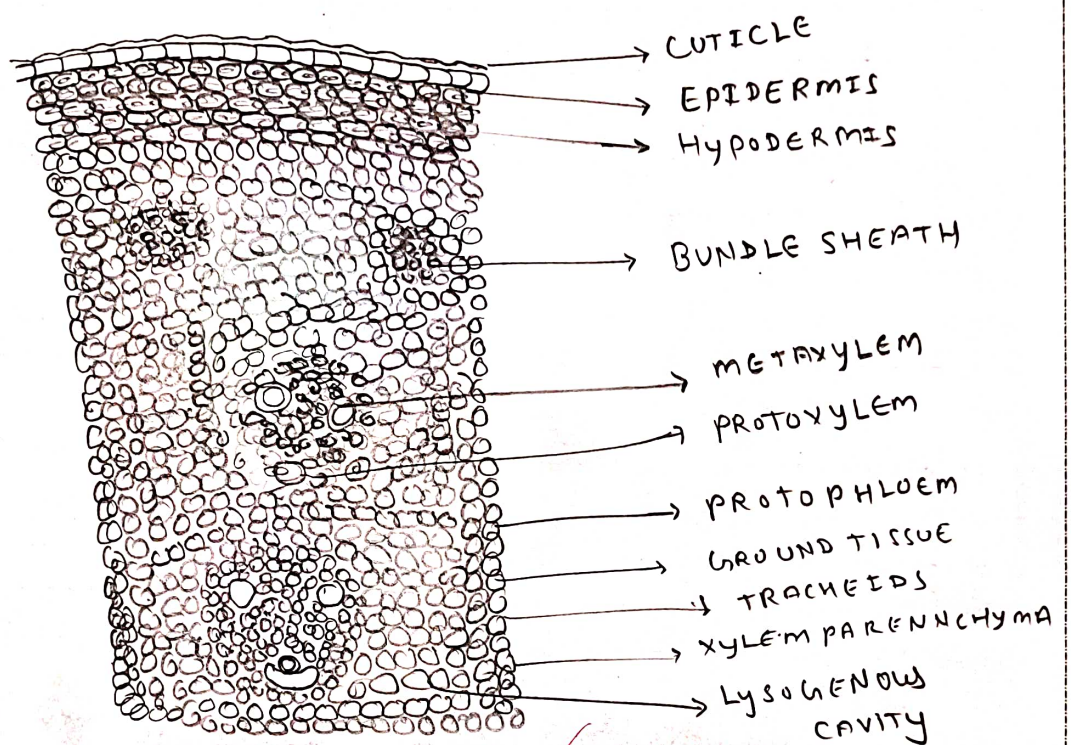 CUTICLE
EPIDERMIS
HYPODERMIS
BUNDLE SHEATH
METAXYLEM
PROTOXYLEM
PROTOPHLOEM
GROUND TISSUE
TRACHEIDS
XYLEM PARENNCHYMA
LYSOGENOUS
CAVITY